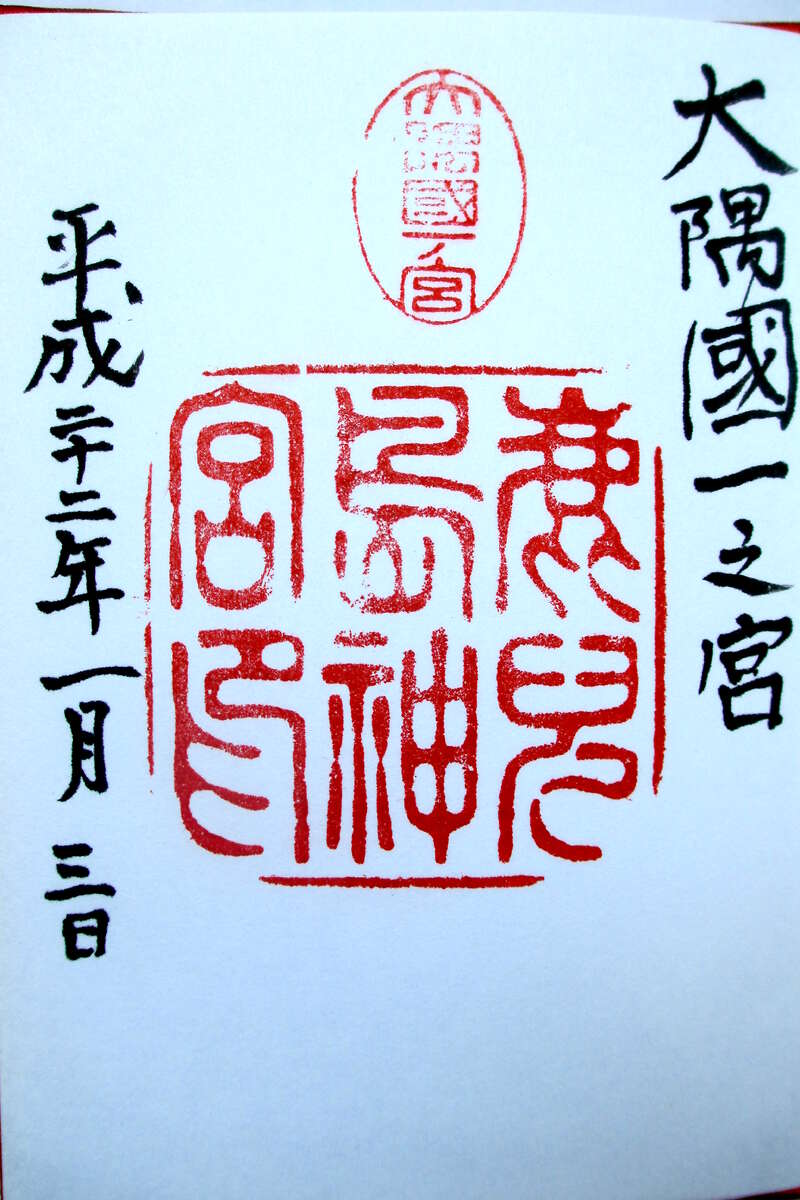 大隅國一之宮
大隅國一ノ宮
鹿兒
島神
宮印
平成二十二年一月三日